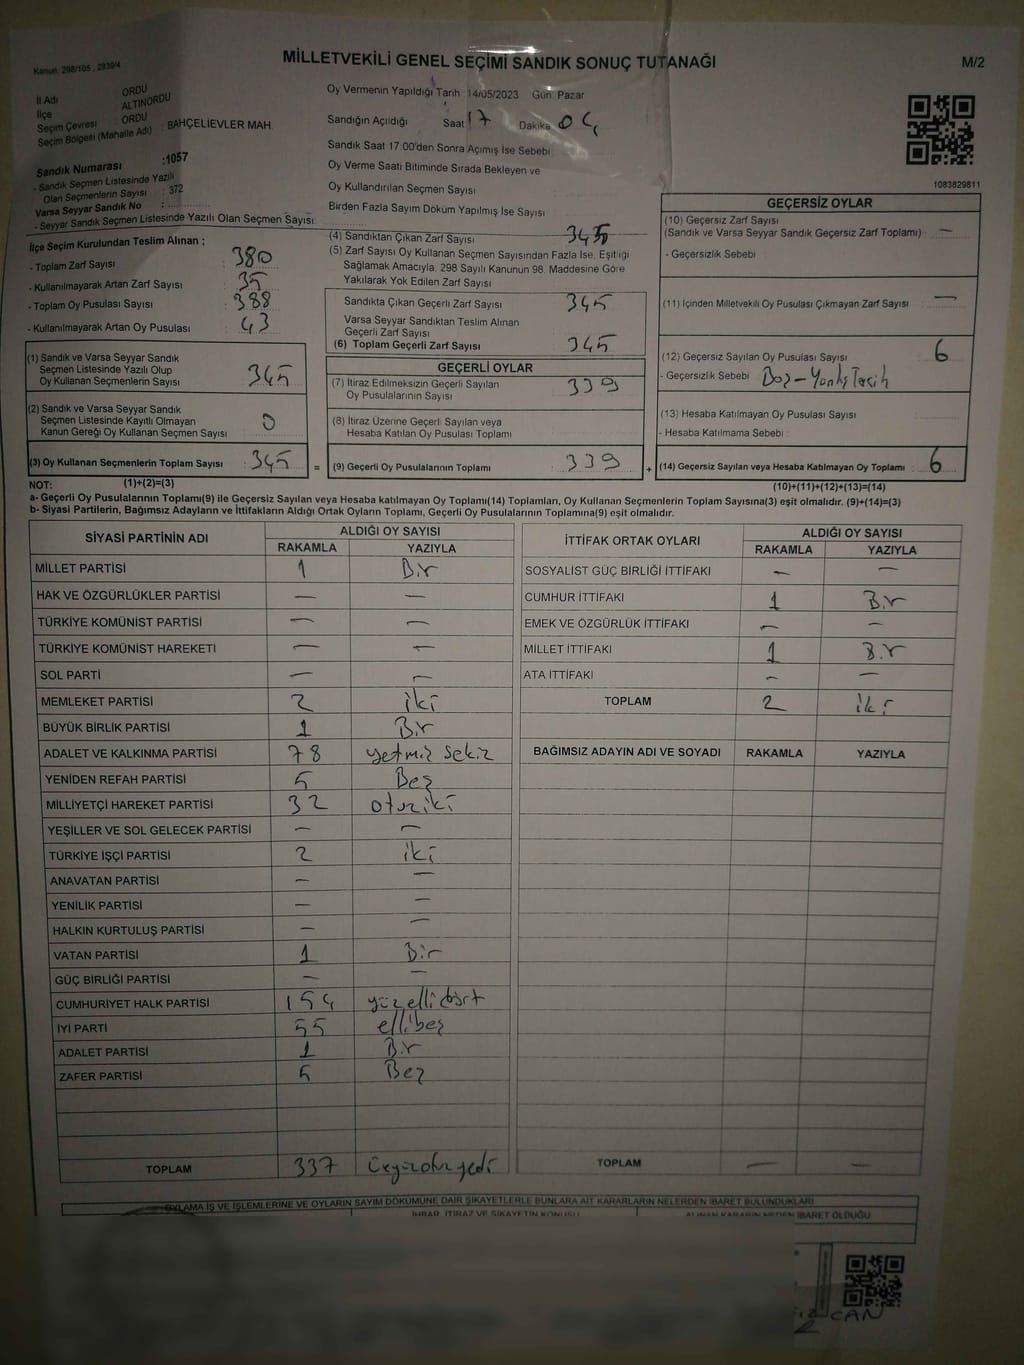 MİLLETVEKİLİ GENEL SEÇİMİ SANDIK SONUÇ TUTANAĞI
M/2
Kanun: 298/105 , 2839/4
İl Adı ORDU
İlçe ALTINORDU
Seçim Çevresi ORDU
Seçim Bölgesi (Mahalle Adı) : BAHÇELİEVLER MAH.
Sandık Numarası :1057
- Sandık Seçmen Listesinde Yazılı
Olan Seçmenlerin Sayısı : 372
Varsa Seyyar Sandık No :
- Seyyar Sandık Seçmen Listesinde Yazılı Olan Seçmen Sayısı
Oy Vermenin Yapıldığı Tarih :14/05/2023 Gün: Pazar
Sandığın Açıldığı Saat 17 Dakika 04
Sandık Saat 17:00'den Sonra Açımış İse Sebebi
Oy Verme Saati Bitiminde Sırada Bekleyen ve
Oy Kullandırılan Seçmen Sayısı
Birden Fazla Sayım Döküm Yapılmış İse Sayısı
1083829811
İlçe Seçim Kurulundan Teslim Alınan ;
- Toplam Zarf Sayısı : 380
- Kullanılmayarak Artan Zarf Sayısı : 35
- Toplam Oy Pusulası Sayısı : 388
- Kullanılmayarak Artan Oy Pusulası : 43
(1) Sandık ve Varsa Seyyar Sandık
Seçmen Listesinde Yazılı Olup
Oy Kullanan Seçmenlerin Sayısı : 345
(2) Sandık ve Varsa Seyyar Sandık
Seçmen Listesinde Kayıtlı Olmayan
Kanun Gereği Oy Kullanan Seçmen Sayısı : 0
(3) Oy Kullanan Seçmenlerin Toplam Sayısı : 345
(4) Sandıktan Çıkan Zarf Sayısı 345
(5) Zarf Sayısı Oy Kullanan Seçmen Sayısından Fazla İse, Eşitliği
Sağlamak Amacıyla, 298 Sayılı Kanunun 98. Maddesine Göre
Yakılarak Yok Edilen Zarf Sayısı
Sandıkta Çıkan Geçerli Zarf Sayısı 345
Varsa Seyyar Sandıktan Teslim Alınan
Geçerli Zarf Sayısı
(6) Toplam Geçerli Zarf Sayısı 345
GEÇERLİ OYLAR
(7) İtiraz Edilmeksizin Geçerli Sayılan
Oy Pusulalarının Sayısı 339
(8) İtiraz Üzerine Geçerli Sayılan veya
Hesaba Katılan Oy Pusulası Toplamı
= (9) Geçerli Oy Pusulalarının Toplamı : 339 +
GEÇERSİZ OYLAR
(10) Geçersiz Zarf Sayısı
(Sandık ve Varsa Seyyar Sandık Geçersiz Zarf Toplamı) : —
- Geçersizlik Sebebi :
(11) İçinden Milletvekili Oy Pusulası Çıkmayan Zarf Sayısı : —
(12) Geçersiz Sayılan Oy Pusulası Sayısı : 6
- Geçersizlik Sebebi : Boş-Yanlış Tercih
(13) Hesaba Katılmayan Oy Pusulası Sayısı :
- Hesaba Katılmama Sebebi :
(14) Geçersiz Sayılan veya Hesaba Katılmayan Oy Toplamı : 6
NOT: (1)+(2)=(3)
(10)+(11)+(12)+(13)=(14)
a- Geçerli Oy Pusulalarının Toplamı(9) ile Geçersiz Sayılan veya Hesaba katılmayan Oy Toplamı(14) Toplamları, Oy Kullanan Seçmenlerin Toplam Sayısına(3) eşit olmalıdır. (9)+(14)=(3)
b- Siyasi Partilerin, Bağımsız Adayların ve İttifakların Aldığı Ortak Oyların Toplamı, Geçerli Oy Pusulalarının Toplamına(9) eşit olmalıdır.
SİYASİ PARTİNİN ADI ALDIĞI OY SAYISI
RAKAMLA YAZIYLA
MİLLET PARTİSİ 1 Bir
HAK VE ÖZGÜRLÜKLER PARTİSİ — —
TÜRKİYE KOMÜNİST PARTİSİ — —
TÜRKİYE KOMÜNİST HAREKETİ — —
SOL PARTİ — —
MEMLEKET PARTİSİ 2 iki
BÜYÜK BİRLİK PARTİSİ 1 Bir
ADALET VE KALKINMA PARTİSİ 78 yetmiş sekiz
YENİDEN REFAH PARTİSİ 5 Beş
MİLLİYETÇİ HAREKET PARTİSİ 32 otuziki
YEŞİLLER VE SOL GELECEK PARTİSİ — —
TÜRKİYE İŞÇİ PARTİSİ 2 iki
ANAVATAN PARTİSİ — —
YENİLİK PARTİSİ — —
HALKIN KURTULUŞ PARTİSİ — —
VATAN PARTİSİ 1 Bir
GÜÇ BİRLİĞİ PARTİSİ — —
CUMHURİYET HALK PARTİSİ 154 yüzellidört
İYİ PARTİ 55 ellibeş
ADALET PARTİSİ 1 Bir
ZAFER PARTİSİ 5 Beş
TOPLAM 337 üçyüzotuzyedi
İTTİFAK ORTAK OYLARI ALDIĞI OY SAYISI
RAKAMLA YAZIYLA
SOSYALİST GÜÇ BİRLİĞİ İTTİFAKI — —
CUMHUR İTTİFAKI 1 Bir
EMEK VE ÖZGÜRLÜK İTTİFAKI — —
MİLLET İTTİFAKI 1 Bir
ATA İTTİFAKI — —
TOPLAM 2 iki
BAĞIMSIZ ADAYIN ADI VE SOYADI RAKAMLA YAZIYLA
TOPLAM — —
OYLAMA İŞ VE İŞLEMLERİNE VE OYLARIN SAYIM DÖKÜMÜNE DAİR ŞİKAYETLERLE BUNLARA AİT KARARLARIN NELERDEN İBARET BULUNDUKLARI
İHBAR, İTİRAZ VE ŞİKAYETİN KONUSU ALINAN KARARIN NEDEN İBARET OLDUĞU
CAN